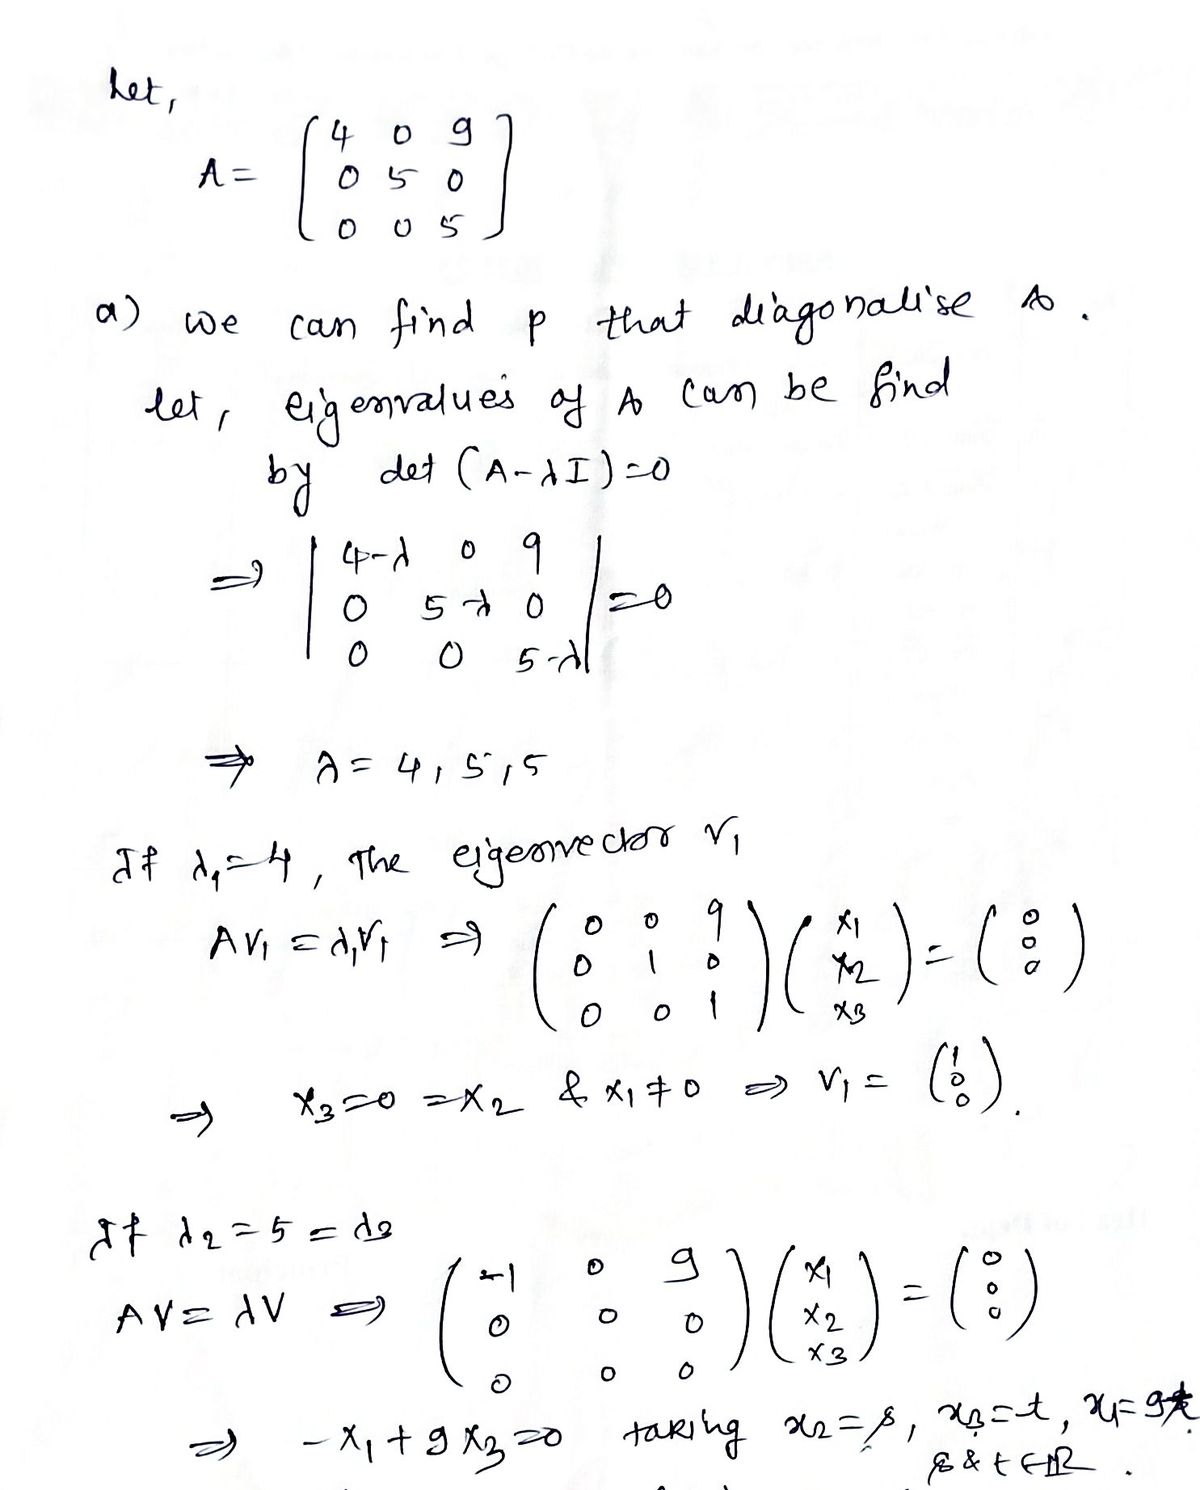 Let,
A = [4 0 9
0 5 0
0 0 5]
a) we can find p that diagonalise A.
let, eigenvalues of A can be find
by det (A-λI)=0
⇒ |4-λ 0 9
0 5-λ 0
0 0 5-λ| = 0
⇒ λ = 4, 5, 5
If λ₁=4, The eigenvector v₁
AV₁ = λ₁V₁ ⇒ (0 0 9
0 1 0
0 0 1) (x₁
x₂
x₃) = (0
0
0)
⇒ x₃=0=x₂ & x₁≠0 ⇒ v₁ = (1
0
0).
If λ₂=5=λ₃
AV=λV ⇒ (-1 0 9
0 0 0
0 0 0) (x₁
x₂
x₃) = (0
0
0)
⇒ -x₁+9x₃=0 taking x₂=s, x₃=t, x₁=9t.
s & t ∈ ℝ.